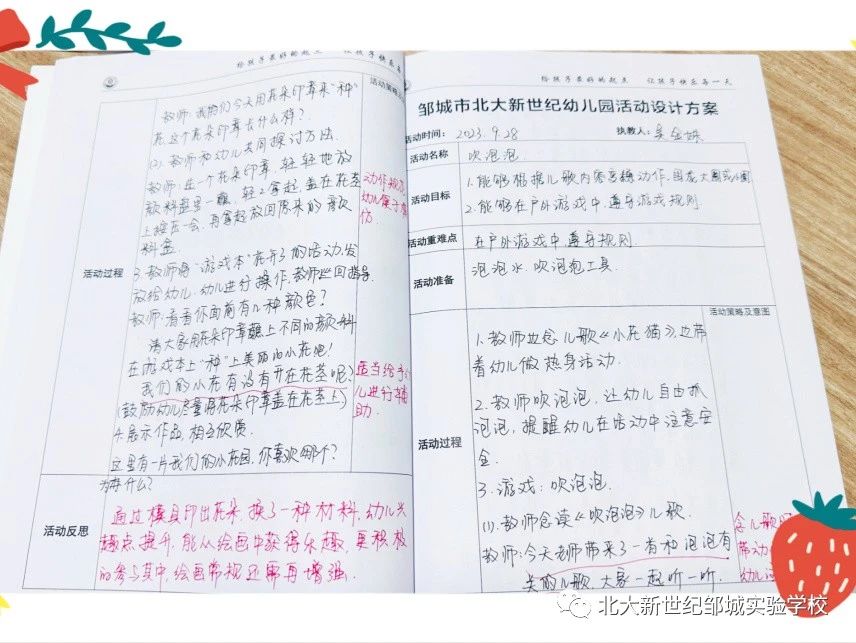 给孩子最好的起点 让孩子快乐
活动策略
教师:我们今天用花朵印章来“种”
花,这个花朵印章有什么样?
(2).教师和幼儿共同探讨方法.
教师:选一个花朵印章,轻轻地放
颜料盘里一蘸,轻轻拿起,盖在花茎
上按压一会,再拿起放回原来的颜
料盒.
3.教师将“游戏本”花开了的活动,发
放给幼儿,幼儿进行操作,教师巡回指导.
教师:看看你面前有几种颜色?
请大家用花朵印章蘸上不同的颜料
在游戏本上“种”上美丽的小花吧!
我们的小花有没有开在花茎呢?
(鼓励幼儿尽量将花朵印章盖在花茎上)
4.展示作品,相互欣赏.
这里有一片我们的小花园,你喜欢哪个?
为什么?
活动过程
动作规范
幼儿便于模
仿
适当给予幼
儿进行辅
助.
活动反思
通过模具印出花朵,换了一种材料,幼儿兴
趣点提升,能从绘画中获得乐趣,更积极
的参与其中,绘画常规还需再增强.
给孩子最好的起点 让孩子快乐每一天
邹城市北大新世纪幼儿园活动设计方案
活动时间: 2023.9.28 执教人:
活动名称 吹泡泡.
活动目标
1.能够根据儿歌内容变换动作,
2.能够在户外游戏中,遵守游戏规则.
活动重难点 在户外游戏中,遵守规则.
活动准备 泡泡水.吹泡泡工具.
活动策略及意图
活动过程
1.教师边念儿歌《小花猫》,边带
着幼儿做热身活动.
2.教师吹泡泡,让幼儿自由抓
泡泡,提醒幼儿在活动中注意安
全.
3.游戏:吹泡泡.
(1).教师念读《吹泡泡》儿歌.
教师:今天老师带来了一首和泡泡有
关的儿歌,大家一起听一听.
念儿歌时
带动
幼儿
北大新世纪邹城实验学校